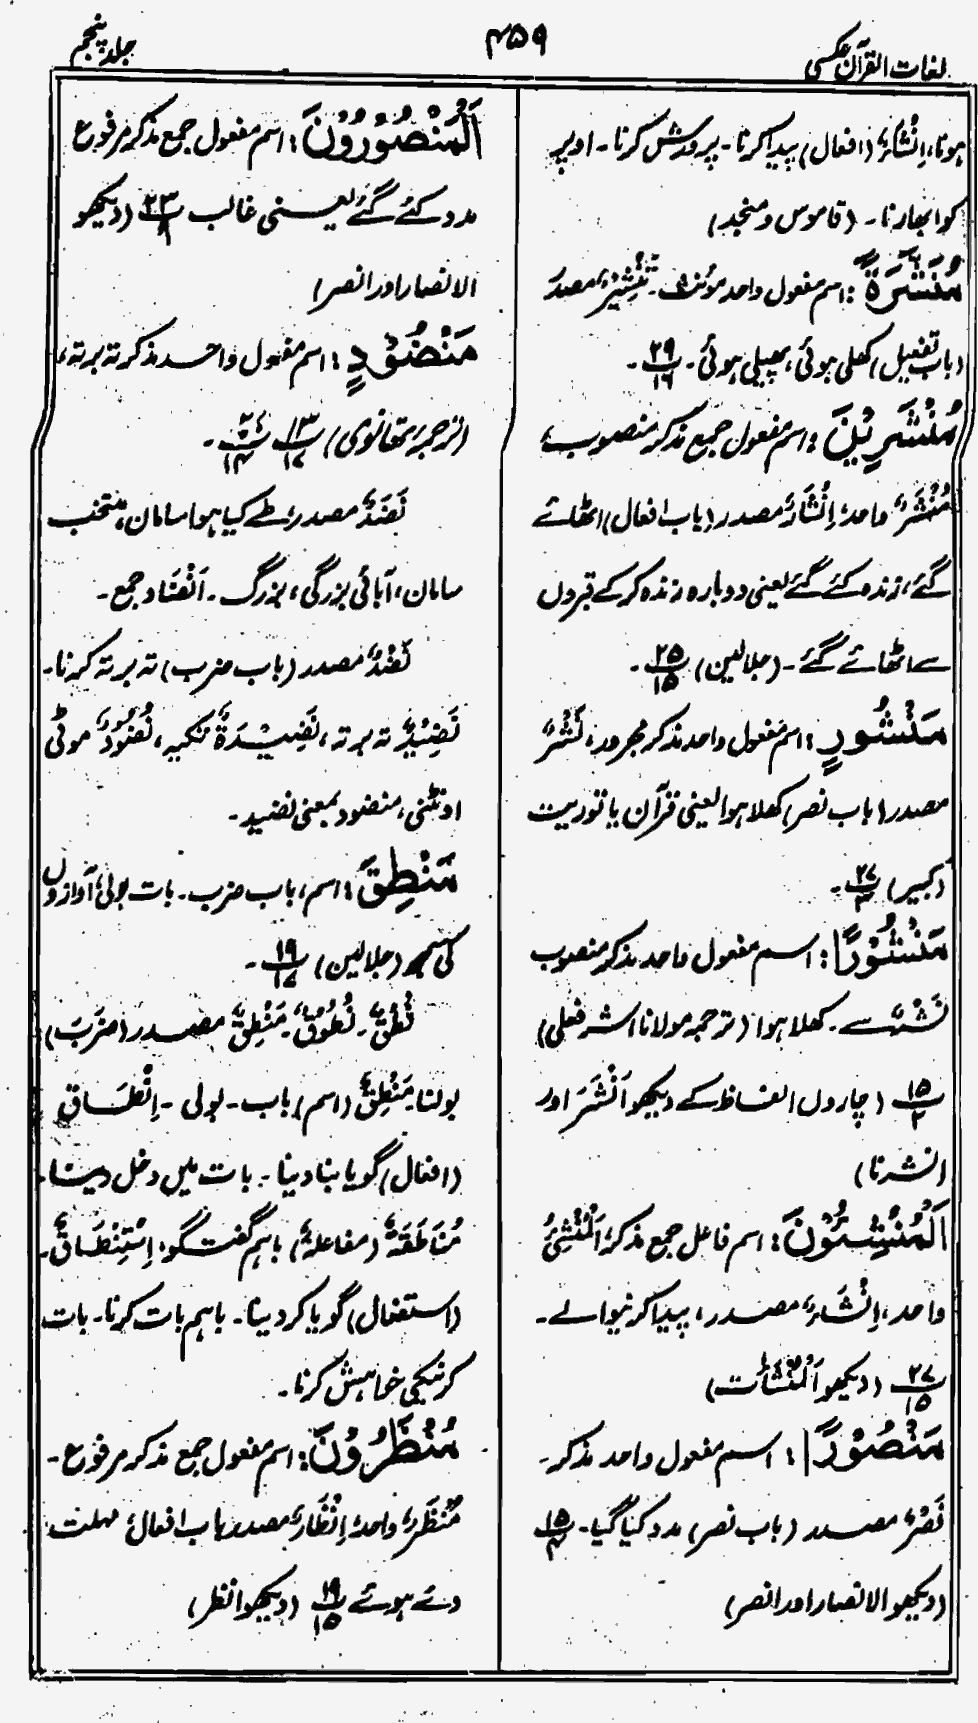 لغات القرآن عکسی
۴۵۹
جلد پنجم
ہونا، اِنْشَاءٌ (افعال) پیدا کرنا۔ پرورش کرنا۔ اوپر
کو ابھارنا۔ (قاموس و منجد)
مُنَشَّرَةً: اسم مفعول واحد مؤنث۔ تَنْشِیْرٌ مصدر
(باب تفعیل) کھلی ہوئی، پھیلی ہوئی۔ ۲۹/۱۶۔
مُنْشَرِیْنَ: اسم مفعول جمع مذکر منصوب،
مُنْشَرٌ واحد، اِنْشَارٌ مصدر (باب افعال) اٹھائے
گئے، زندہ کئے گئے یعنی دوبارہ زندہ کر کے قبروں
سے اٹھائے گئے۔ (جلالین) ۲۵/۱۵۔
مَنْشُورٍ: اسم مفعول واحد مذکر مجرور، نَشْرٌ
مصدر (باب نصر) کھلا ہوا یعنی قرآن یا توریت
(کبیر) ۲۷/۳۔
مَنْشُوْرًا: اسم مفعول واحد مذکر منصوب
نَشْرٌ سے۔ کھلا ہوا (ترجمہ مولانا اشرفعلی)
۱۵/۲ (چاروں الفاظ کے دیکھو اَنْشَرَ اور
انشرنا)
اَلْمُنْشِئُوْنَ: اسم فاعل جمع مذکر، اَلْمُنْشِئُ
واحد، اِنْشَاءٌ مصدر، پیدا کرنیوالے۔
۲۷/۱۵ (دیکھو اَلْمُنْشَاٰت)
مَنْصُوْرًا: اسم مفعول واحد مذکر۔
نَصْرٌ مصدر (باب نصر) مدد کیا گیا۔ ۱۵/۴
(دیکھو الانصار اور انصر)
اَلْمَنْصُوْرُوْنَ: اسم مفعول جمع مذکر مرفوع
مدد کئے گئے یعنی غالب ۲۳/۹ (دیکھو
الانصار اور انصر)
مَنْضُوْدٍ: اسم مفعول واحد مذکر تہ برتہ،
(ترجمہ تھانوی) ۱۲/۷ ۲۷/۱۴۔
نَضَدٌ مصدر، طے کیا ہوا سامان، منتخب
سامان، آبائی بزرگی، بزرگ۔ اَنْضَاد جمع۔
نَضْدٌ مصدر (باب ضرب) تہ برتہ کرنا۔
نَضِیْدٌ تہ برتہ، نَضِیْدَةٌ تکیہ، نُضُوْدٌ موٹی
اونٹنی، منضود بمعنی نضید۔
مَنْطِقَ: اسم، باب ضرب۔ بات بولی، آوازوں
کی سمجھ (جلالین) ۱۹/۱۷۔
نُطْقٌ۔ نُطُوْقٌ۔ مَنْطِقٌ مصدر (ضَرَبَ)
بولنا۔ مَنْطِقٌ (اسم) باب۔ بولی۔ اِنْطَاقٌ
(افعال) گویا بنا دینا۔ بات میں دخل دینا۔
مُنَاطَقَةٌ (مفاعلۃ) باہم گفتگو، اِسْتِنْطَاقٌ۔
(استفعال) گویا کر دینا۔ باہم بات کرنا۔ بات
کرنیکی خواہش کرنا۔
مُنْظَرُوْنَ: اسم مفعول جمع مذکر مرفوع۔
مُنْظَرٌ واحد، اِنْظَارٌ مصدر باب افعال، مہلت
دئے ہوئے ۱۹/۱۵ (دیکھو انظر)